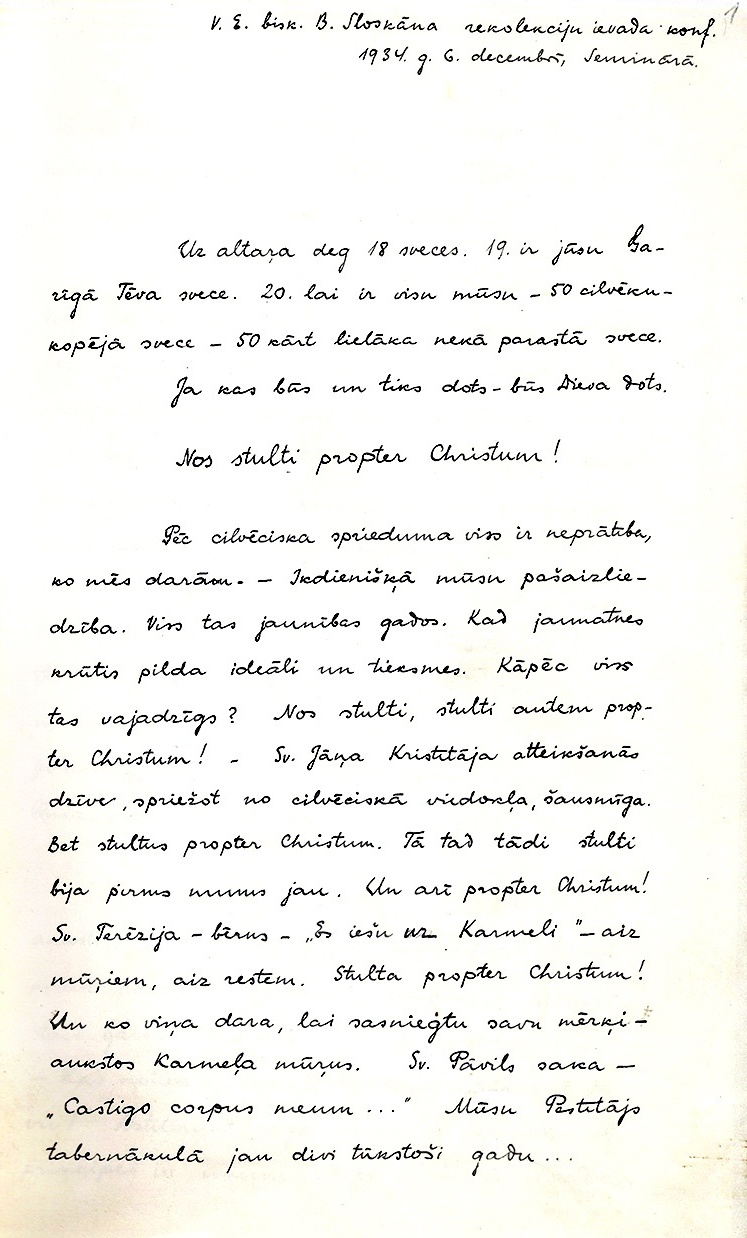 1
V. E. bisk. B. Sloskāna rekolekciju ievada konf.
1934. g. 6. decembrī, Seminārā.
Uz altaŗa deg 18 sveces. 19. ir jūsu Ga-
rīgā Tēva svece. 20. lai ir visu mūsu – 50 cilvēku –
kopējā svece – 50 kārt lielāka nekā parastā svece.
Ja kas būs un tiks dots – būs Dieva dots.
Nos stulti propter Christum!
Pēc cilvēciska sprieduma viss ir neprātība,
ko mēs darām. – Ikdienišķā mūsu pašaizlie-
dzība. Viss tas jaunības gados. Kad jaunatnes
krūtis pilda ideāli un tieksmes. Kāpēc viss
tas vajadzīgs? Nos stulti, stulti autem prop-
ter Christum! – Sv. Jāņa Kristītāja atteikšanās
dzīve, spriežot no cilvēciskā viedokļa, šausmīga.
Bet stultus propter Christum. Tā tad tādi stulti
bija pirms mums jau. Un arī propter Christum!
Sv. Terēzija – bērns – „Es iešu uz Karmeli" – aiz
mūŗiem, aiz restēm. Stulta propter Christum!
Un ko viņa dara, lai sasniegtu savu mērķi –
aukstos Karmeļa mūŗus. Sv. Pāvils saka –
„Castigo corpus meum ..." Mūsu Pestītājs
tabernākulā jau divi tūkstoši gadu ...